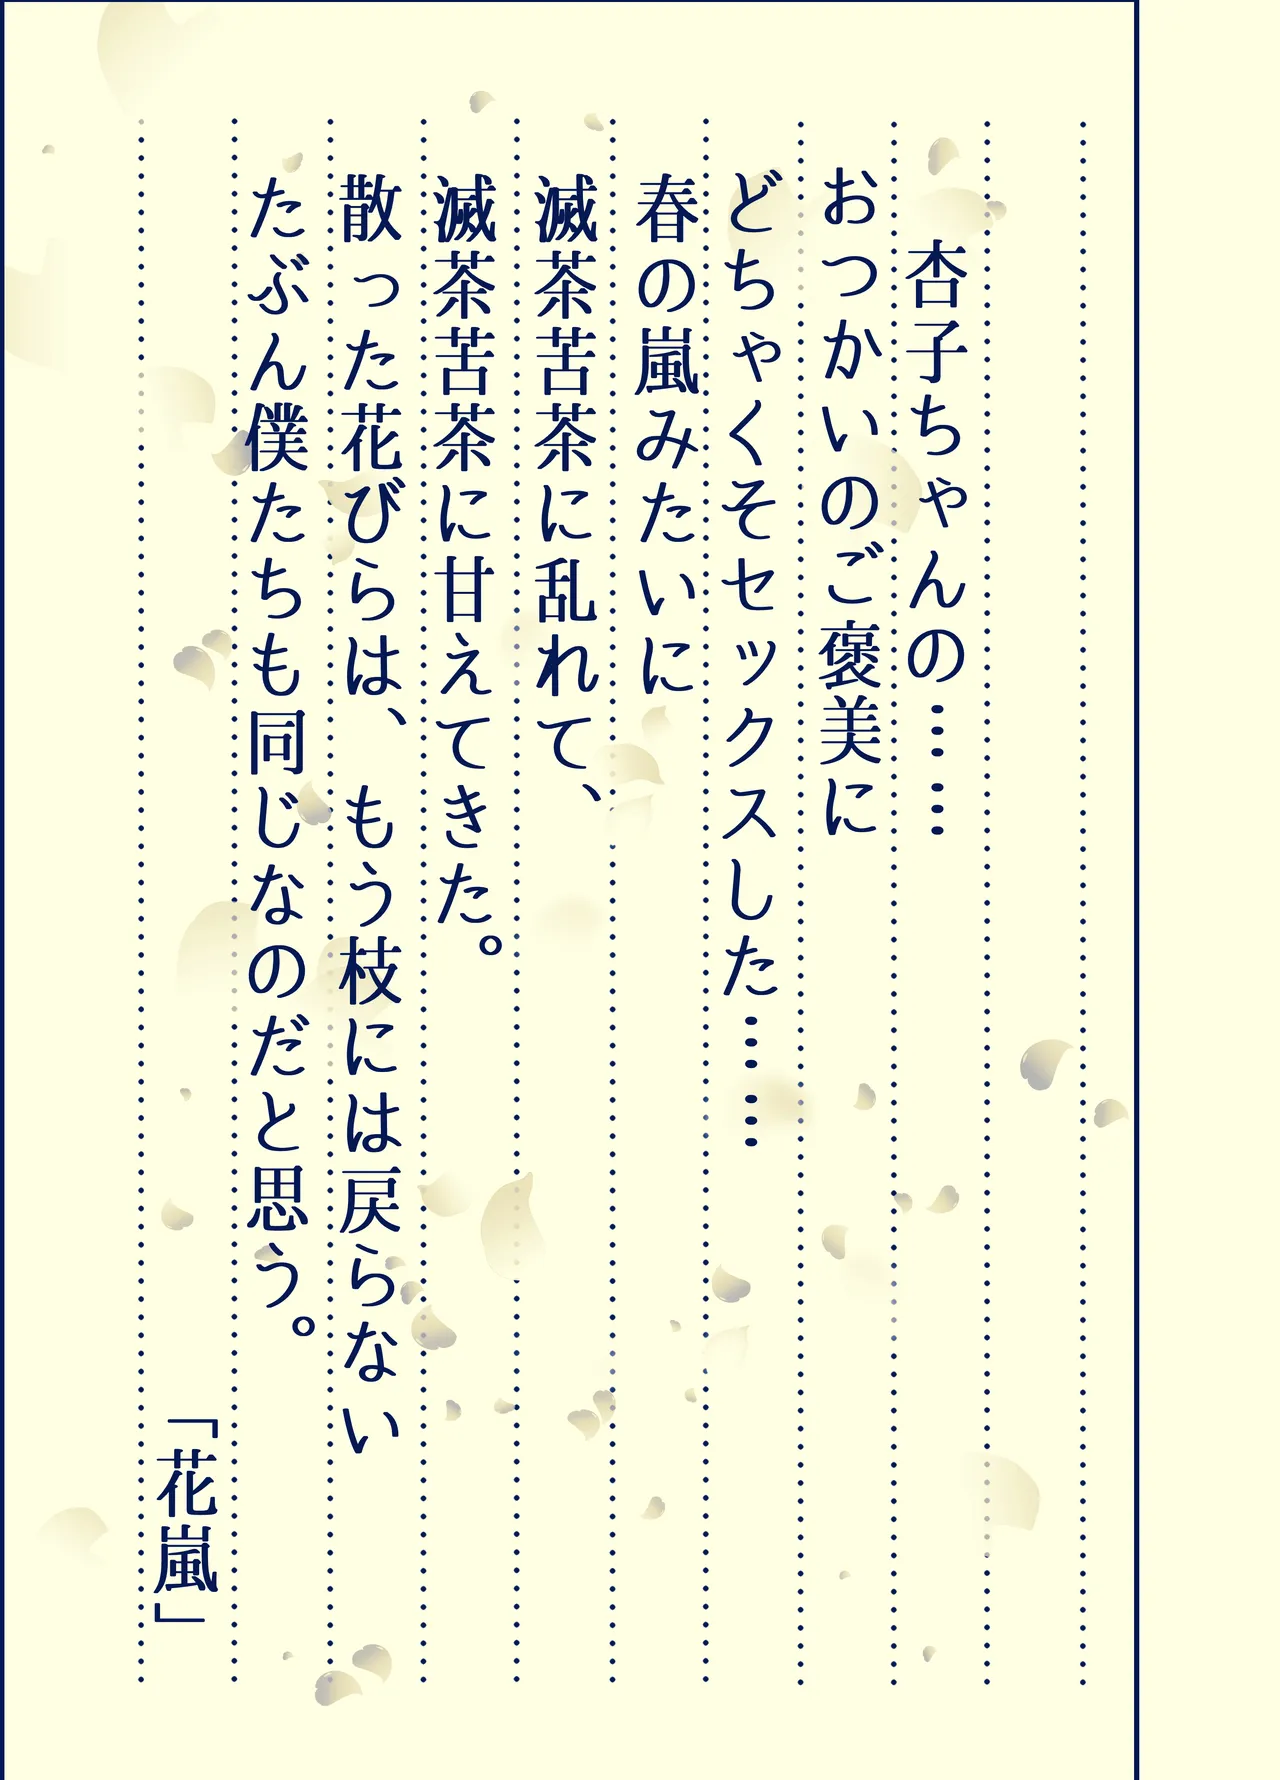 杏子ちゃんの……
おつかいのご褒美に
どちゃくそセックスした……
春の嵐みたいに
滅茶苦茶に乱れて、
滅茶苦茶に甘えてきた。
散った花びらは、もう枝には戻らない
たぶん僕たちも同じなのだと思う。
「花嵐」